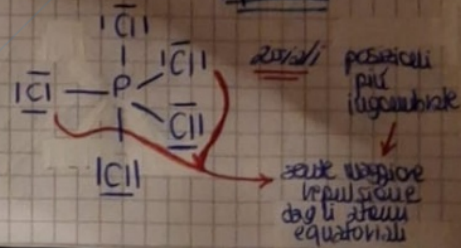 Cl
Cl
Cl
P
Cl
Cl
assiali
posizioni
più
ingombrate
sente maggiore
repulsione
dagli atomi
equatoriali